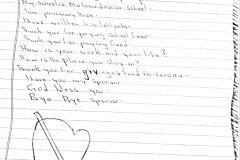 My school is Melama Junior school.
I am primary three.
I have written his letter to
Thank you for paying school fees
Thank you for paying food
How is your work and your life?
How is the place you stay in?
Thank you for giving food in corona.
I love you my sponsor
God bless you
Bye Bye Sponsor.